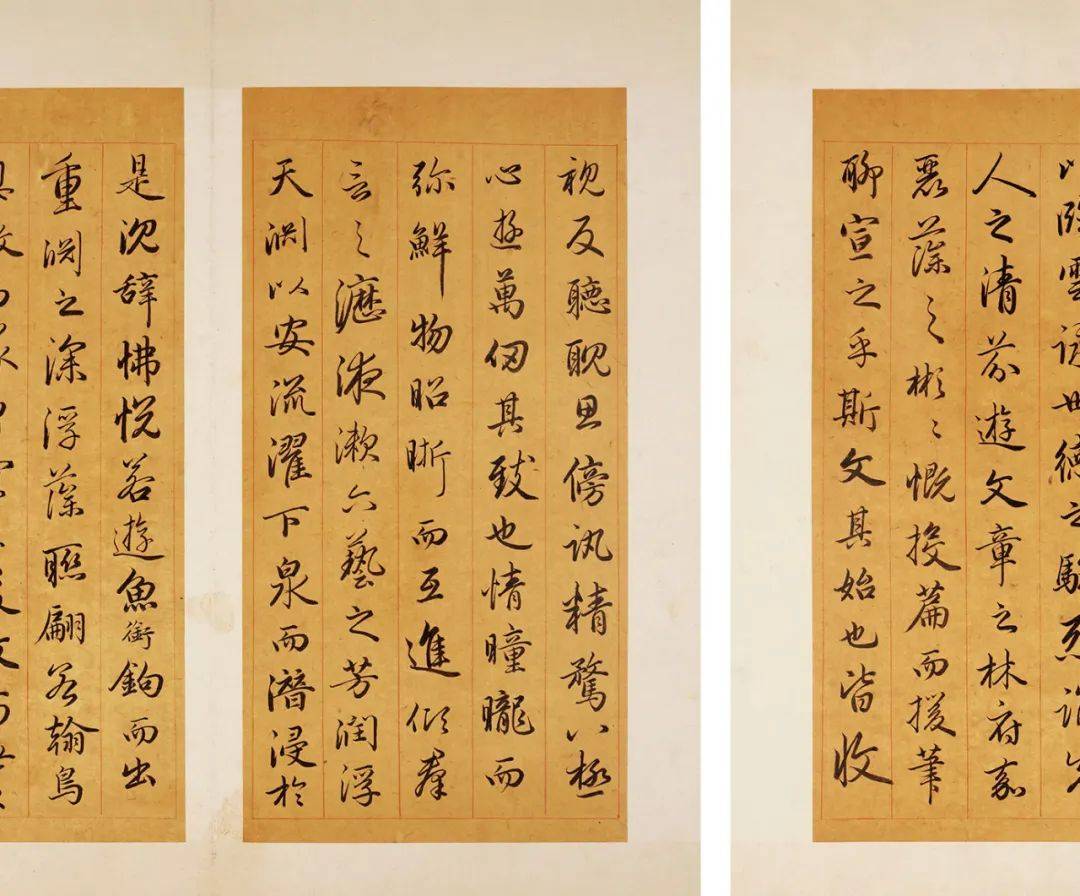 以臨雲詠世德之駿烈誦先
人之清芬遊文章之林府嘉
麗藻之彬〻慨投篇而援筆
聊宣之乎斯文其始也皆收
視反聽耽思傍訊精騖八極
心遊萬仞其致也情曈曨而
弥鮮物昭晰而互進傾羣
言之瀝液漱六藝之芳潤浮
天渊以安流濯下泉而潛浸於
是沈辭怫悅若遊魚銜鉤而出
重渊之深浮藻聯翩若翰鳥